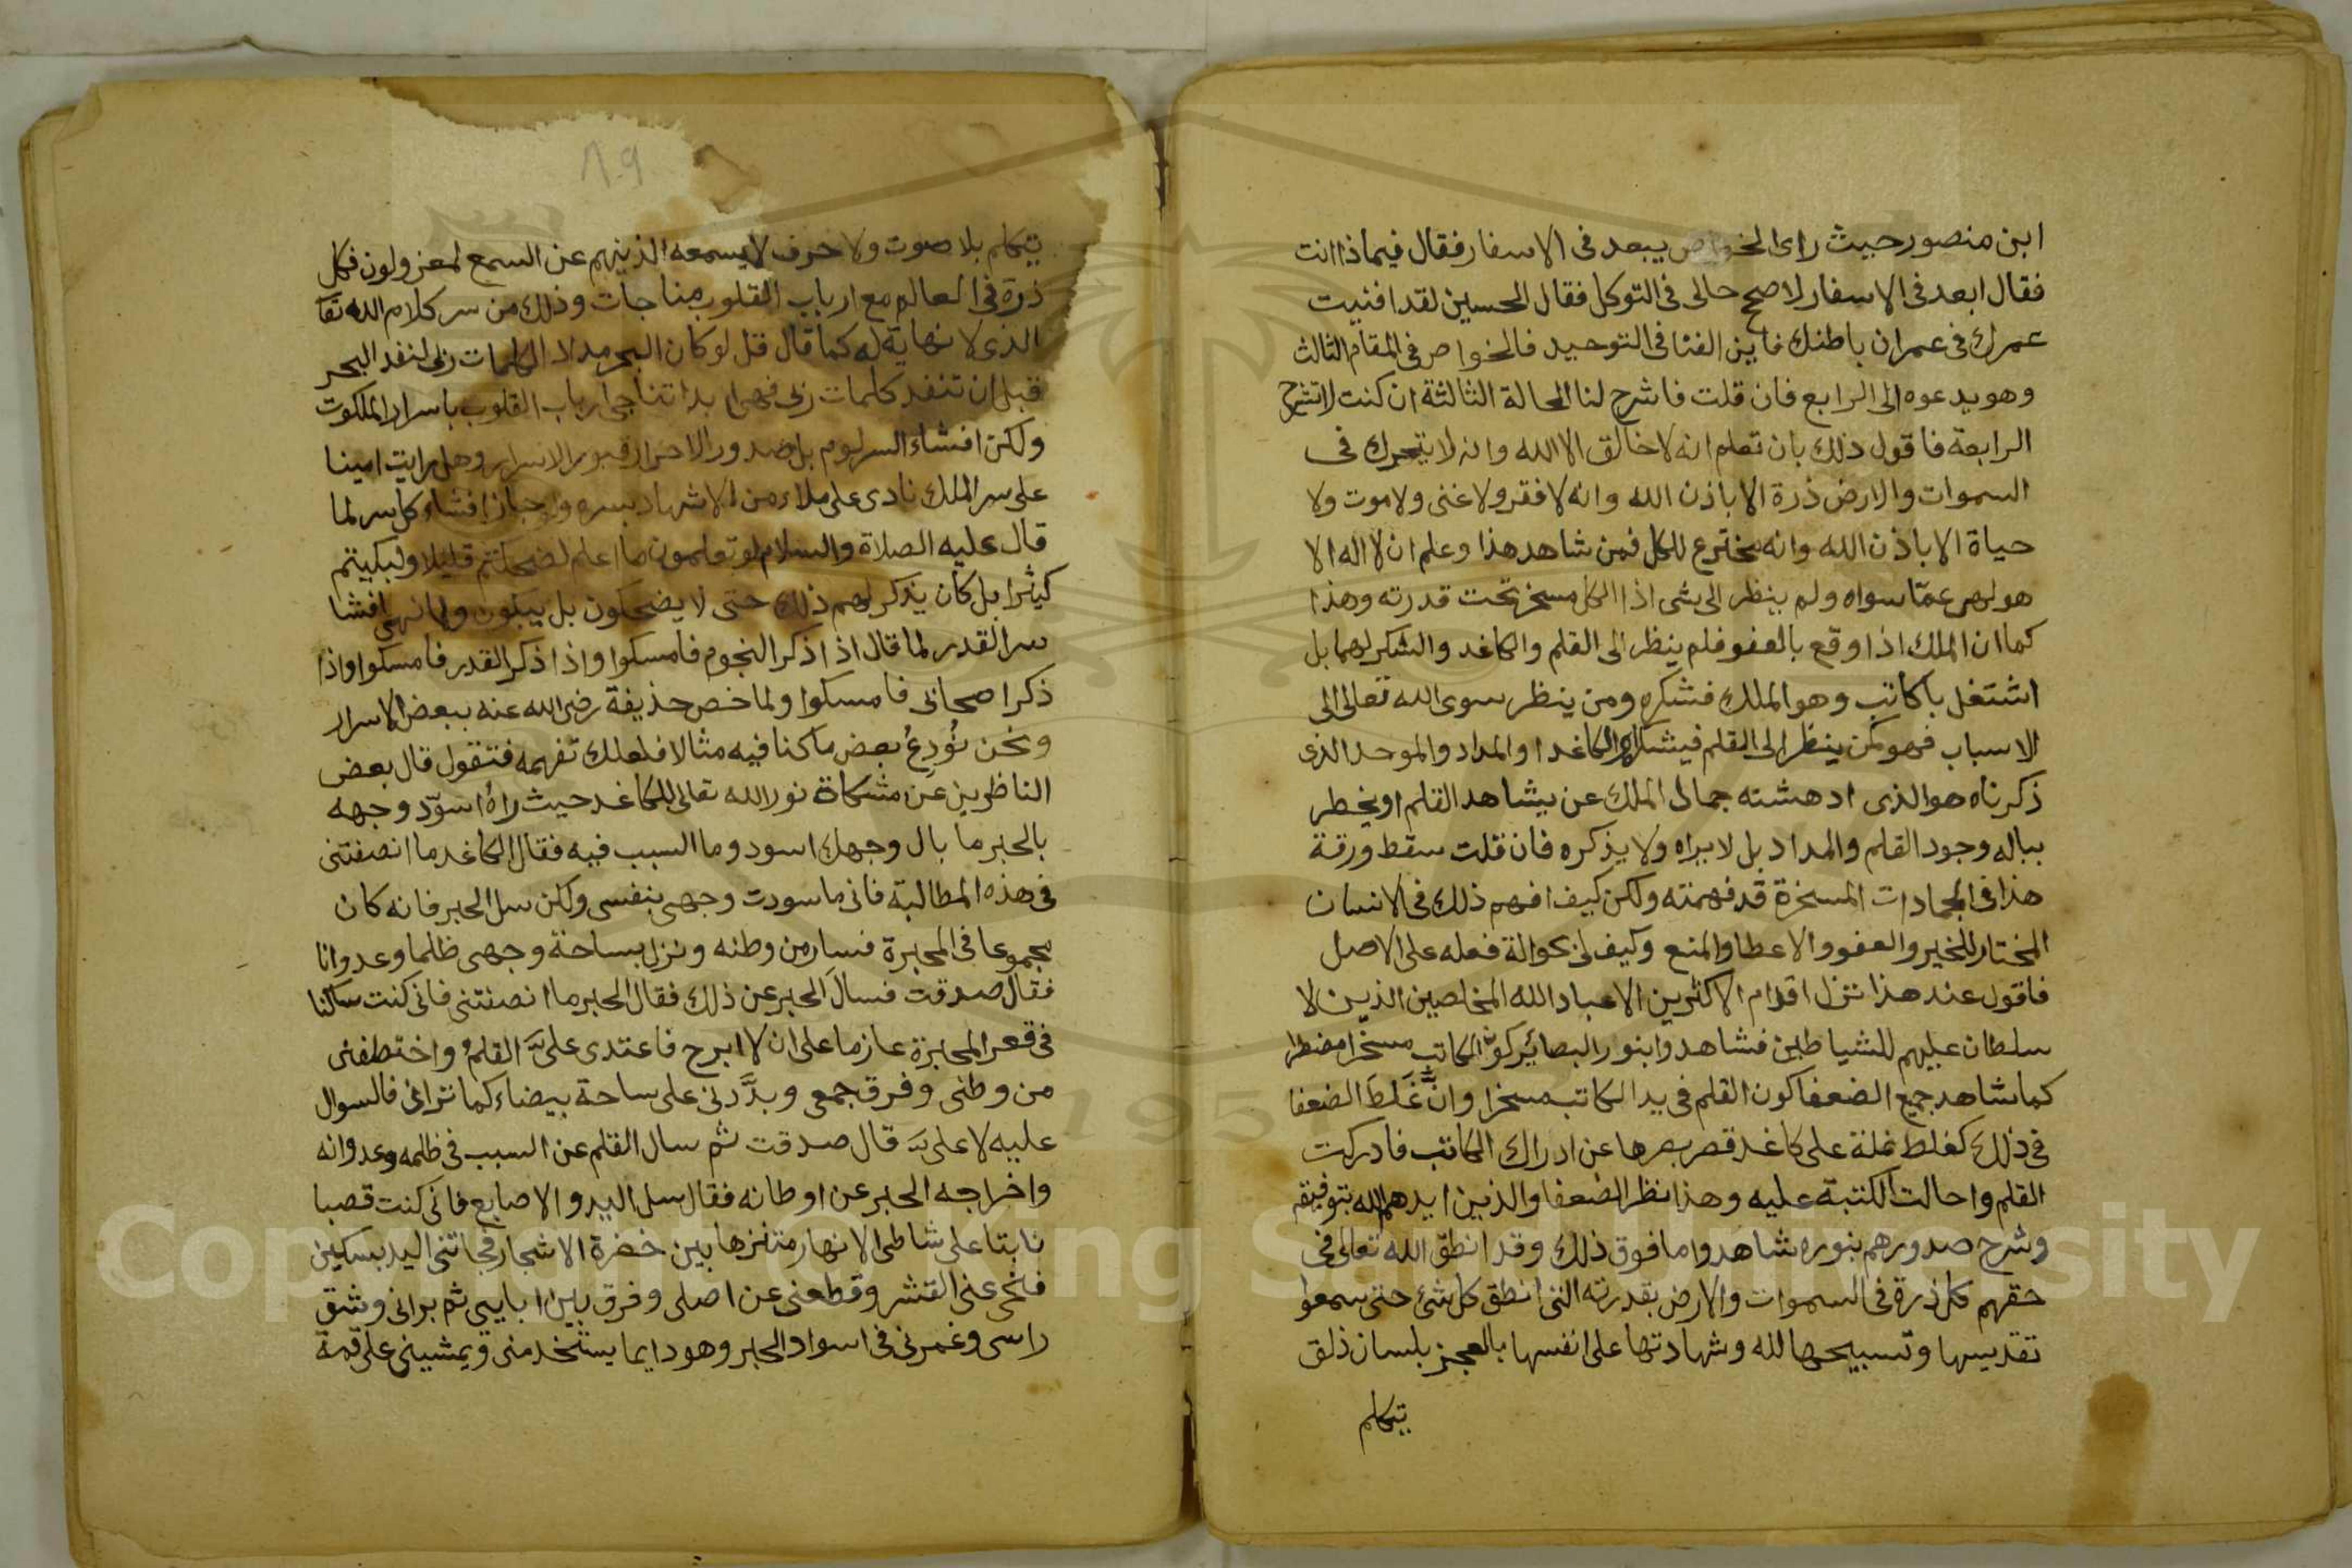 ابن منصور حيث راى الخواص يبعد فى الاسفار فقال فيماذا انت
فقال ابعد فى الاسفار لا صحح حالى فى التوكل فقال الحسين لقد افنيت
عمرك فى عمران باطنك فاين الفنا فى التوحيد فالخواص فى المقام الثالث
وهو يدعوه الى الرابع فان قلت فاشرح لنا الحالة الثالثة ان كنت لا تشرح
الرابعة فاقول ذلك بان تعلم انه لا خالق الا الله وانه لا يتحرك فى
السموات والارض ذرة الا باذن الله وانه لا فقر ولا غنى ولا موت ولا
حياة الا باذن الله وانه مخترع للكل فمن شاهد هذا وعلم ان لا اله الا
هو لهى عمّا سواه ولم ينظر الى شى اذا الكل مسخر تحت قدرته وهذا
كما ان الملك اذا وقع بالعفو فلم ينظر الى القلم والكاغد والشكر لهما بل
اشتغل باكاتب وهو الملك فشكره ومن ينظر سوى الله تعالى الى
الاسباب فهو كمن ينظر الى القلم فيشكره او الكاغد او المداد والموحد الذى
ذكرناه هو الذى ادهشته جمال الملك عن يشاهد القلم او يخطر
بباله وجود القلم والمداد بل لا يراه ولا يذكره فان قلت سقط ورقة
هذا فى الجمادات المسخرة قد فهمته ولكن كيف افهم ذلك فى الانسان
المختار للخير والعفو والاعطا والمنع وكيف لى بحوالة فعله على الاصل
فاقول عند هذا تزل اقدام الاكثرين الا عباد الله المخلصين الذين لا
سلطان عليهم للشياطين فشاهدوا بنور البصائر كون الكاتب مسخرا مضطرا
كما شاهد جميع الضعفا كون القلم فى يد الكاتب مسخرا وانّ غَلَطَ الضعفا
فى ذلك كغلط نملة على كاغد قصر بصرها عن ادراك الكاتب فادركت
القلم واحالت الكتبة عليه وهذا نظر الضعفا والذين ايدهم الله بتوفيقه
وشرح صدورهم بنوره شاهدوا ما فوق ذلك وقد انطق الله تعالى فى
حقهم كل ذرة فى السموات والارض بقدرته التى انطق كل شئ حتى سمعوا
تقديسها وتسبيحها لله وشهادتها على انفسها بالعجز بلسان ذلق
تيكلم
٨٩
تيكلم بلا صوت ولا حرف لا يسمعه الذينهم عن السمع لمعزولون فكل
ذرة فى العالم مع ارباب القلوب مناجات وذلك من سر كلام الله تعا
الذى لا نهاية له كما قال قل لو كان البحر مدادا لكلمات ربى لنفد البحر
قبل ان تنفد كلمات ربى فهى ابدا تناجى ارباب القلوب باسرار الملكوت
ولكن افشاء السر لوم بل صدور الاحرار قبور الاسرار وهل رايت امينا
على سر الملك نادى على ملاء من الاشهاد بسره ولو جاز افشاء كل سر لما
قال عليه الصلاة والسلام لو تعلمون ما اعلم لضحكتم قليلا ولبكيتم
كثيرا بل كان يذكر لهم ذلك حتى لا يضحكون بل يبكون ولما نهى افشا
سر القدر لما قال اذا ذكر النجوم فامسكوا واذا ذكر القدر فامسكوا واذا
ذكر اصحابى فامسكوا ولما خص حذيفة رضى الله عنه ببعض الاسرار
ونحن نُودِعُ بعض ما كنا فيه مثالا فلعلك تفهمه فتقول قال بعض
الناظرين عن مشكاة نور الله تعالى للكاغد حيث راه اسوّد وجهه
بالحبر ما بال وجهك اسود وما السبب فيه فقال الكاغد ما انصفتنى
فى هذه المطالبة فانى ما سودت وجهى بنفسى ولكن سل الحبر فانه كان
مجموعا فى المحبرة فسار من وطنه ونزل بساحة وجهى ظلما وعدوانا
فقال صدقت فسالَ الحبر عن ذلك فقال الحبر ما انصفتنى فانى كنت ساكنا
فى قعر المحبرة عازما على ان لا ابرح فاعتدى علىَّ القلمُ واختطفنى
من وطنى وفرق جمعى وبدَّدنى على ساحة بيضاء كما ترانى فالسوال
عليه لا علىَّ قال صدقت ثم سال القلم عن السبب فى ظلمه وعدوانه
واخراجه الحبر عن اوطانه فقال سل اليد والاصابع فانى كنت قصبا
نابتا على شاطى الانهار متنزها بين خضرة الاشجار فجاتنى اليد بسكين
فنحى عنى القشر وقطعنى عن اصلى وفرق بين ثم برانى وشق
راسى وغمرنى فى اسواد الحبر وهو دايما يستخدمنى ويمشينى على قمة